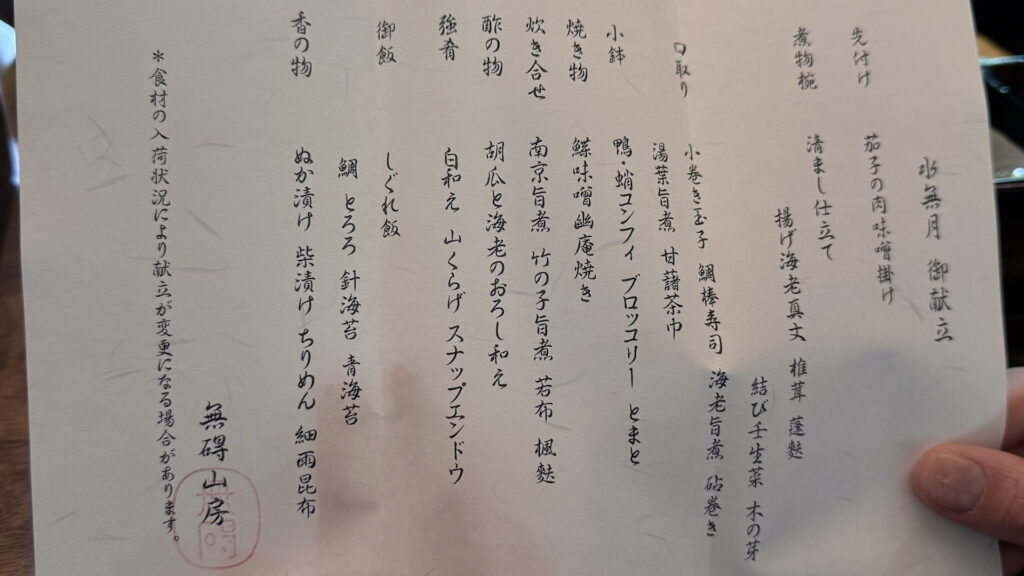 水無月 御献立
先付け 茄子の肉味噌掛け
煮物椀 清まし仕立て
揚げ海老真丈 椎茸 蓬麩
結び壬生菜 木の芽
口取り 小巻き玉子 鯛棒寿司 海老旨煮 砧巻き
湯葉旨煮 甘藷茶巾
小鉢 鴨・蛸コンフィ ブロッコリー とまと
焼き物 鰆味噌幽庵焼き
炊き合せ 南京旨煮 竹の子旨煮 若布 楓麩
酢の物 胡瓜と海老のおろし和え
強肴 白和え 山くらげ スナップエンドウ
御飯 しぐれ飯
鯛 とろろ 針海苔 青海苔
香の物 ぬか漬け 柴漬け ちりめん 細雨昆布
＊食材の入荷状況により献立が変更になる場合があります。
無碍山房